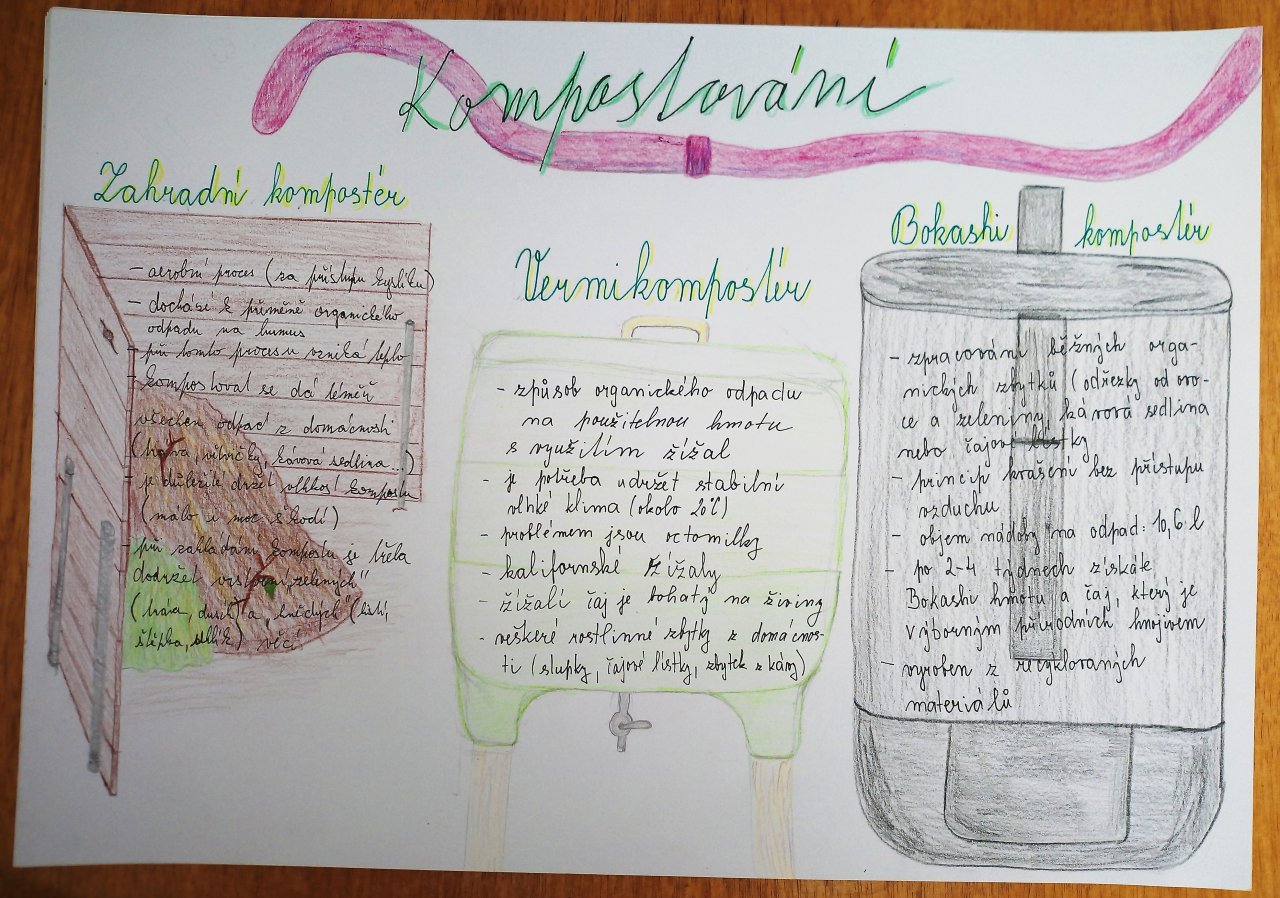 Kompostování
Zahradní kompostér
- aerobní proces (za přístupu kyslíku)
- dochází k přeměně organického
odpadu na humus
- při tomto procesu vzniká teplo
- kompostovat se dá téměř
všechen odpad z domácnosti
(tráva, větvičky, kávová sedlina...)
- je důležité držet vlhkost kompostu
(málo i moc škodí)
- při zakládání kompostu je třeba
dodržet vrstvení „zelených"
(tráva, dusík) a „hnědých" (listí,
štěpka, uhlík) věcí
Vermikompostér
- způsob organického odpadu
na použitelnou hmotu
s využitím žížal
- je potřeba udržet stabilní
vlhké klima (okolo 20°C)
- problémem jsou octomilky
- kalifornské žížaly
- žížalí čaj je bohatý na živiny
- veškeré rostlinné zbytky z domácnos-
ti (slupky, čajové lístky, zbytek z kávy)
Bokashi kompostér
- zpracování běžných orga-
nických zbytků (odřezky od ovo-
ce a zeleniny, kávová sedlina
nebo čajové lístky
- princip kvašení bez přístupu
vzduchu
- objem nádoby na odpad: 10,6 l
- po 2-4 týdnech získáte
Bokashi hmotu a čaj, který je
výborným přírodních hnojivem
- vyroben z recyklovaných
materiálů